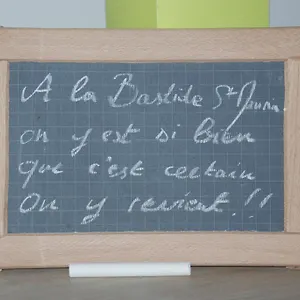 A la Bastide St Maurin
on y est si bien
que c'est certain
On y revient !!